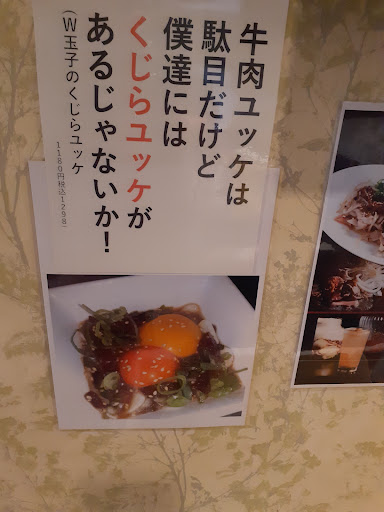 牛肉ユッケは
駄目だけど
僕達には
くじらユッケが
あるじゃないか！
（W玉子のくじらユッケ
1180円税込1298）